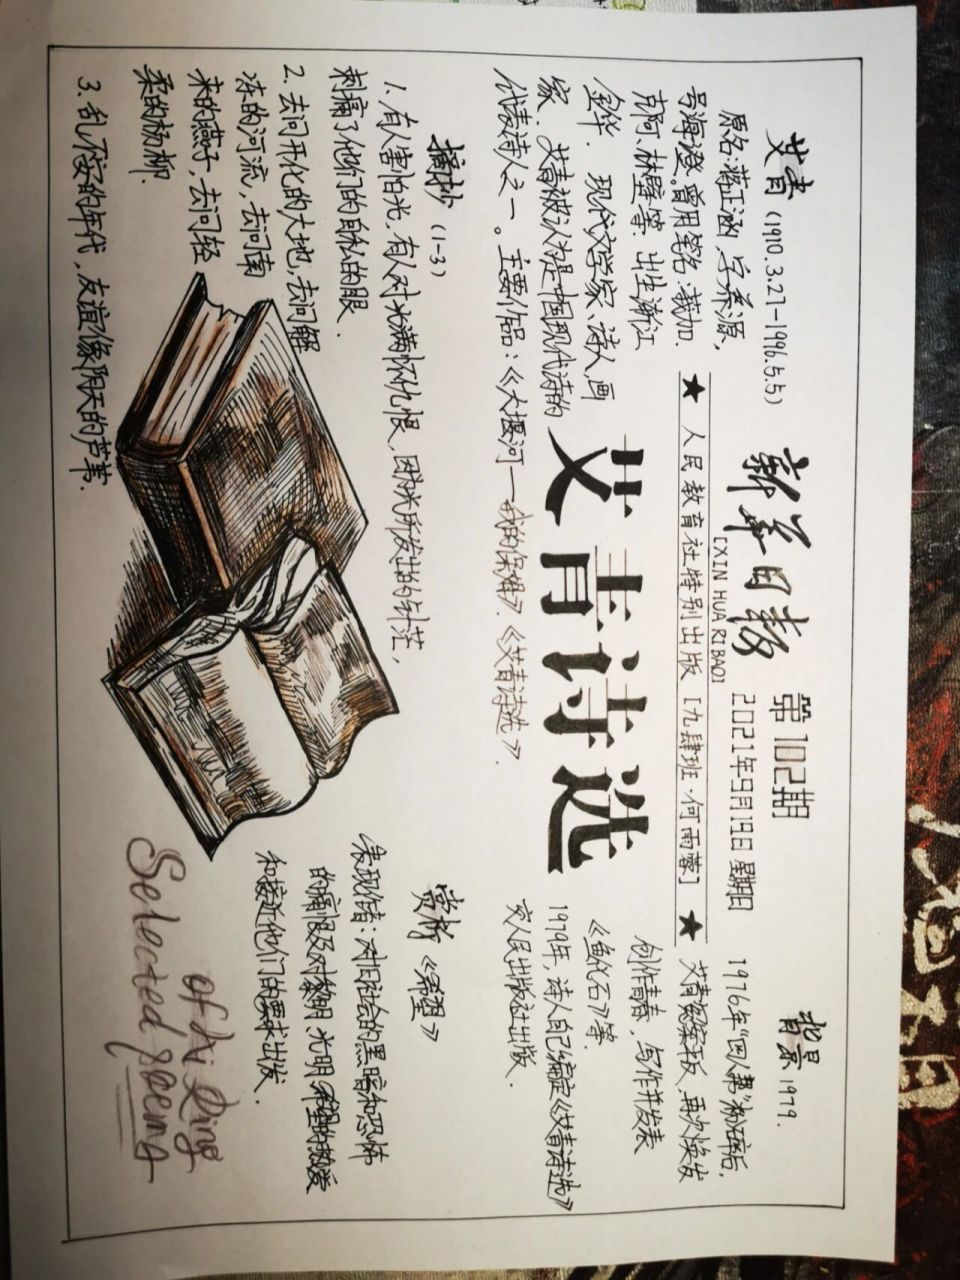 艾青（1910.3.27-1996.5.5）
原名：蒋正涵，字养源，
号海澄，曾用笔名：莪加.
克阿、林壁等.出生浙江
金华.现代文学家、诗人、画
家.艾青被认为是中国现代诗的
代表诗人之一。主要作品：《大堰河—我的保姆》.《艾青诗选》.
新华日报
[XIN HUA RI BAO]
第102期
2021年9月19日 星期日
★ 人民教育社特别出版 [九肆班·何雨蓉] ★
艾青诗选
背景 1979.
1976年“四人帮”粉碎后，
艾青冤案平板，再次焕发
创作青春，写作并发表
《鱼化石》等.
1979年，诗人自己编定《艾青诗选》
交人民出版社出版.
摘抄（1-3）
1.有人害怕光，有人对光满怀仇恨，因为光所发出的针芒，
刺痛了他们的自私的眼.
2.去问开化的大地，去问解
冻的河流，去问南
来的燕子，去问轻
柔的杨柳.
3.乱不安的年代，友谊像阴天的芦苇.
赏析《希望》
表现作者：对旧社会的黑暗和恐怖
的痛恨及对黎明.光明.希望的热爱
和接近他们的要求出发.
Selected poems
of Ai Qing